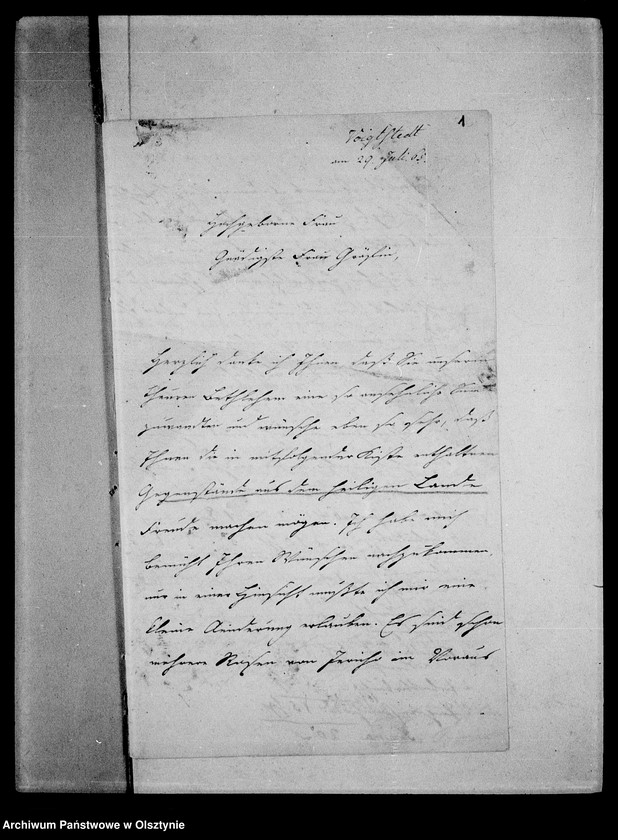 1
Voigtstedt
am 29. Juli 63.
Hochgeborne Frau
Gnädigste Frau Gräfin,
Herzlich danke ich Ihnen daß Sie unserem
theuren Bethlehem eine so ansehnliche
zuwandten und wünsche eben so sehr, daß
Ihnen die in mitfolgender Kiste enthaltenen
Gegenstände aus dem heiligen Lande
Freude machen mögen. Ich habe mich
bemüht Ihren Wünschen nachzukommen,
nur in einer Hinsicht müßte ich mir eine
kleine Aenderung erlauben. Es sind schon
mehrere Rosen von Jericho im Voraus
Archiwum Państwowe w Olsztynie